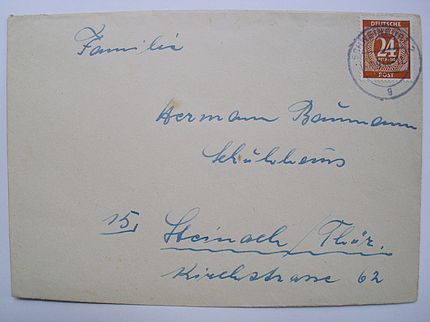 Familie
Hermann Baumann
Schuhhaus
15, Steinach/Thür.
Kirchstrasse 62
DEUTSCHE
24
POST
g